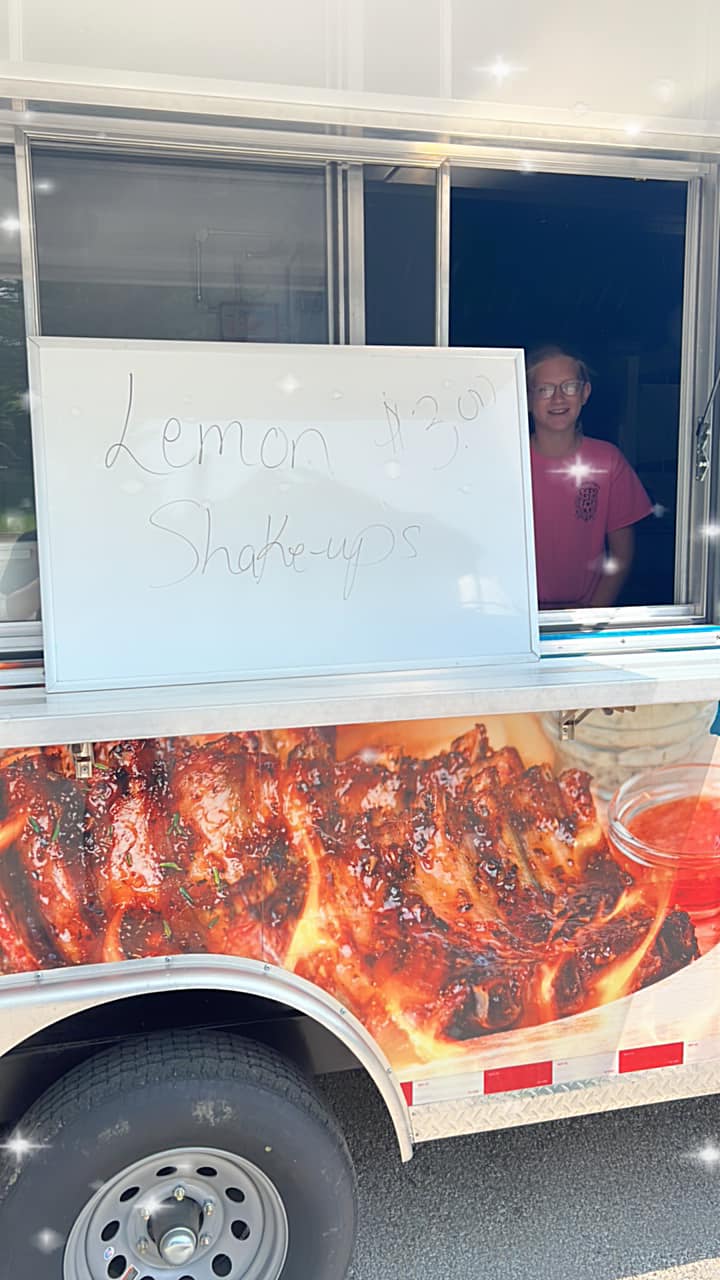 Lemon $3.00
Shake-ups